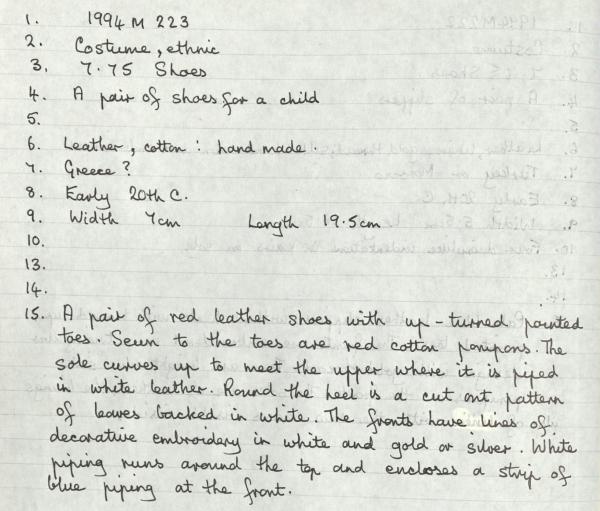 1. 1994 M 223
2. Costume, ethnic
3. 7.75 Shoes
4. A pair of shoes for a child
5.
6. Leather, cotton : hand made.
7. Greece ?
8. Early 20th C.
9. Width 7cm Length 19.5cm
10.
13.
14.
15. A pair of red leather shoes with up-turned pointed
toes. Sewn to the toes are red cotton pompons. The
sole curves up to meet the upper where it is piped
in white leather. Round the heel is a cut out pattern
of leaves backed in white. The fronts have lines of
decorative embroidery in white and gold or silver. White
piping runs around the top and encloses a strip of
blue piping at the front.